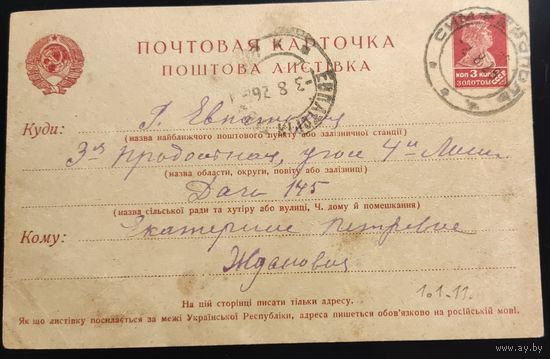 ПОЧТОВАЯ КАРТОЧКА
ПОШТОВА ЛИСТІВКА
СИМФЕРОПОЛЬ
ЕВПАТОРИЯ
3 8 26
КОП 3 КОП
ЗОЛОТОМ
Куди: Г. Евпатория
(назва найближчого поштового пункту або залізничної станції)
3я Продольная, угол 4й Линии
(назва области, округи, повіту або залізниці)
Дача 145
(назва сільської ради та хутіру або вулиці, Ч. дому й помешкання)
Кому: Екатерине Петровне
Жданович
1.01-11.
На цій сторінці писати тільки адресу.
Як що листівку посилається за межі Української Республіки, адреса пишеться обов'язково на російській мові.
www.ay.by